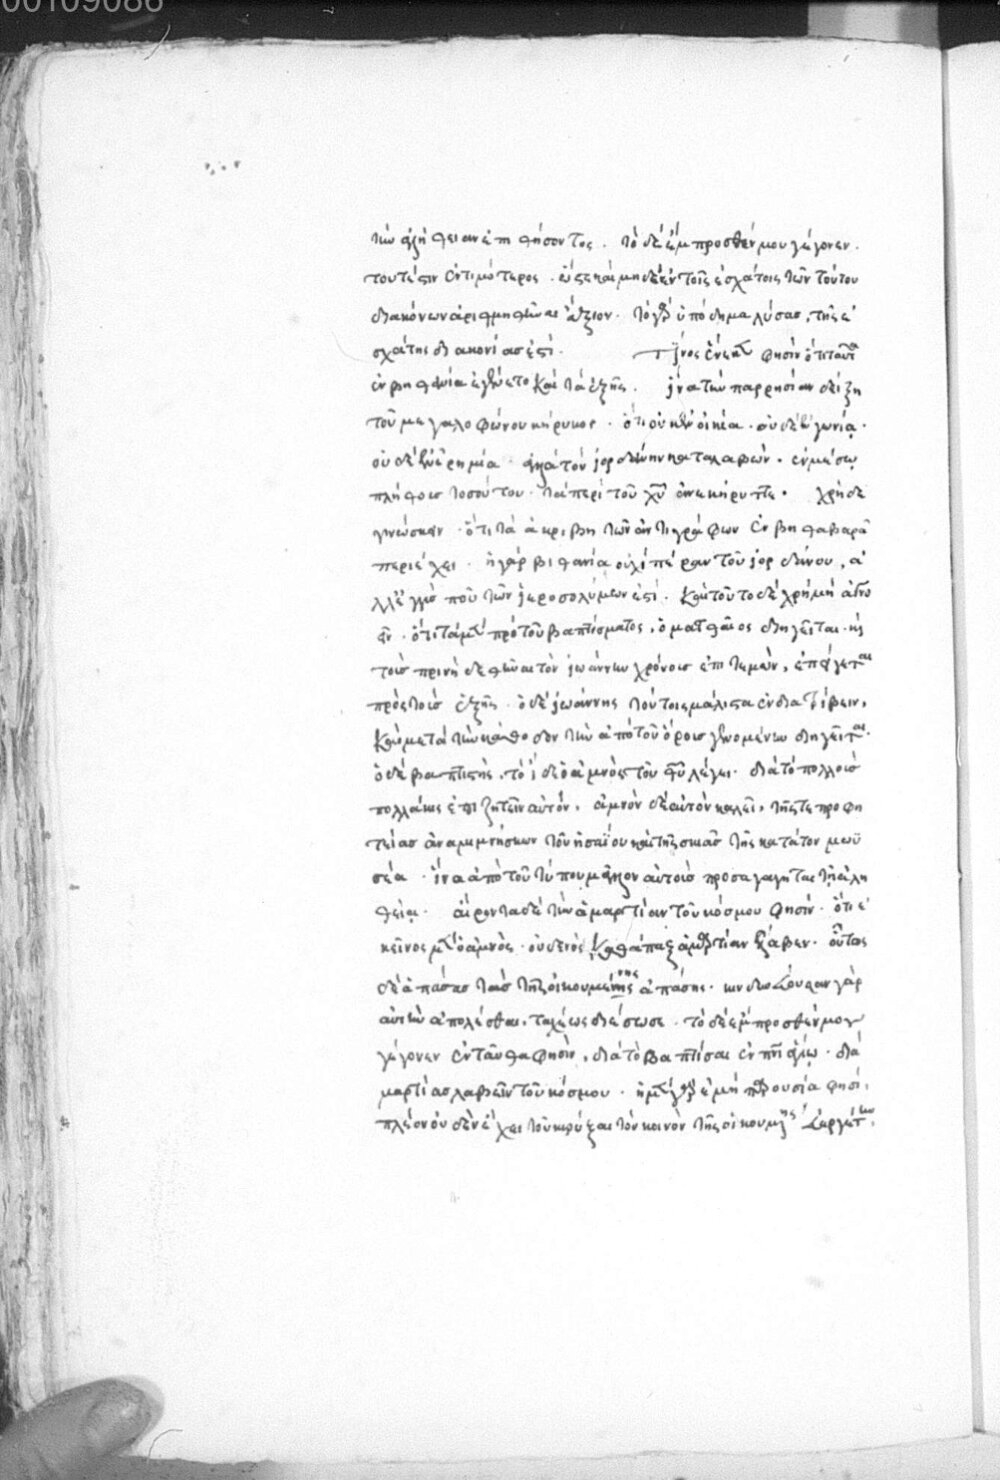 00109086
τὴν ἀλήθειαν ἐπιθήσοντος. τὸ δὲ ἔμπροσθέν μου γέγονεν.
τουτέστιν ἐντιμότερος. ὥστε καὶ μηδὲ ἐν τοῖς ἐσχάτοις τῶν τούτου
διακόνων ἀριθμηθῆναι ἄξιον. τὸ γὰρ ὑπόδημα λύσαι, τῆς ἐ
σχάτης διακονίας ἐστί. Τίνος ἕνεκεν φησὶν ὅτι ταῦτα
ἐν βηθανία ἐγένετο καὶ τὰ ἑξῆς. ἵνα τὴν παρρησίαν δείξη
τοῦ μεγαλοφώνου κήρυκος. ὅτι οὐκ ἐν οἰκία. οὐδὲ ἐν γωνία.
οὐδὲ ἐν ἐρημία. ἀλλὰ τὸν ἰορδάνην καταλαβὼν. ἐν μέσω
πλήθοις τοσούτου. τὰ περὶ τοῦ χυ ἀνεκήρυττε. χρὴ δὲ
γινώσκειν. ὅτι τὰ ἀκριβῆ τῶν ἀντιγράφων ἐν βηθαβαρᾶ
περιέχει. ἡ γὰρ βιθανία οὐχὶ πέραν τοῦ ἰορδάνου, ἀ
λλ' ἐγγύς που τῶν ἱεροσολύμων ἐστί. καὶ τοῦτο δὲ χρὴ μὴ ἀγνο
εῖν. ὅτι τὰ μὲν πρὸ τοῦ βαπτίσματος, ὁ ματθαῖος διηγεῖται. καὶ
τοὺς πρινὴ δεθῆναι τὸν ἰωάννην χρόνους ἐπιτεμὼν, ἐπείγεται
πρὸς τοὺς ἑξῆς. ὁ δὲ ἰωάννης τούτοις μάλιστα ἐνδιατρίβειν,
καὶ μετὰ τὴν κάθοδον τὴν ἀπὸ τοῦ ὄρους γενομένην διηγεῖται.
ὁ δὲ βαπτιστὴς, τὸ ἴδε ὁ ἀμνὸς τοῦ θυ λέγει. διὰ τὸ πολλοὺς
πολλάκις ἐπιζητεῖν αὐτόν. ἀμνὸν δὲ αὐτὸν καλεῖ, τῆς τε προφη
τείας ἀναμιμνήσκων τοῦ ἡσαΐου καὶ τῆς σκιᾶς τῆς κατὰ τὸν μωϋ
σέα. ἵνα ἀπὸ τοῦ τύπου μᾶλλον αὐτοὺς προσαγάγηται τῆ ἀλη
θεία. αἴροντα δὲ τὴν ἁμαρτίαν τοῦ κόσμου φησὶν. ὅτι ἐ
κεῖνος μὲν ὁ ἀμνὸς. οὐδενὸς καθάπαξ ἁμαρτίαν ἔλαβεν. οὗτος
δὲ ἁπάσας τὰς τῆς οἰκουμένης ἁπάσης. κινδυνεύουσαν γὰρ
αὐτὴν ἀπολέσθαι, ταχέως διέσωσε. τὸ δὲ ἔμπροσθέν μου
γέγονεν ἐνταῦθα φησὶν, διὰ τὸ βαπτίσαι ἐν πνι ἁγίω.
μαρτίας λαβεῖν τοῦ κόσμου. ἡ μὲν γὰρ ἐμὴ παρουσία φησὶ,
πλέον οὐδὲν ἔχει τοῦ κηρύξαι τὸν κοινὸν τῆς οἰκουμένης εὐεργέτην.